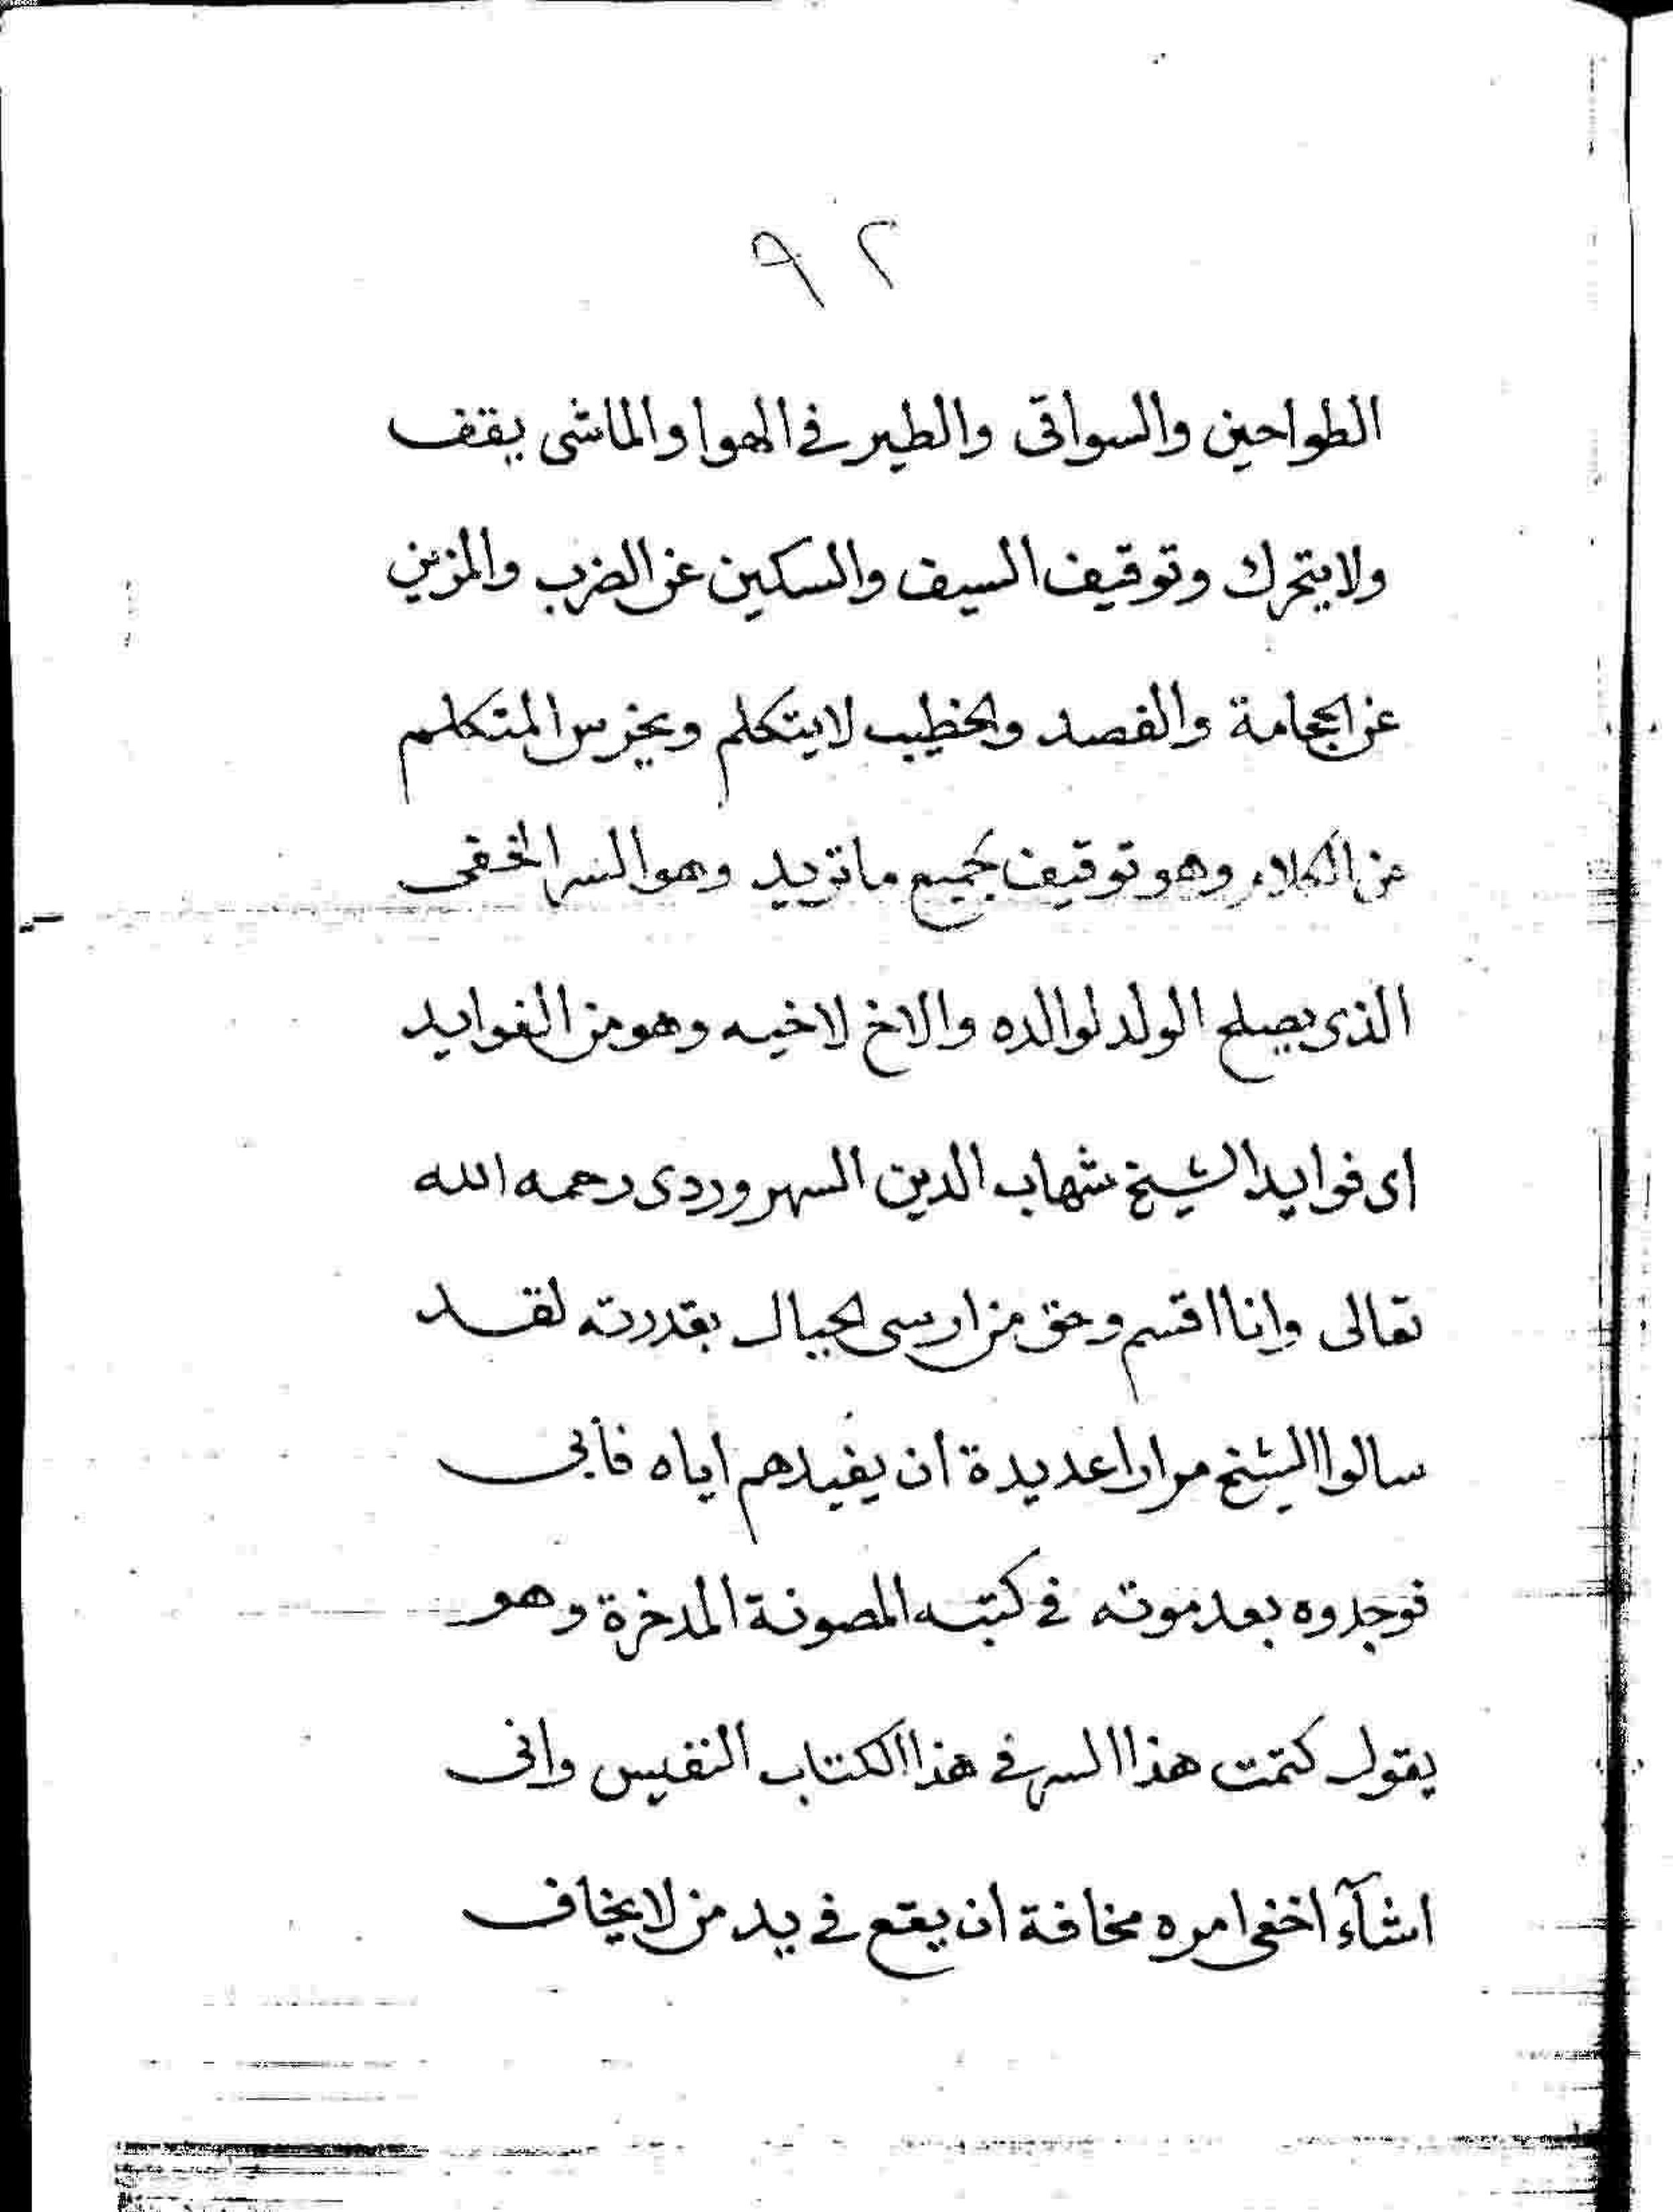 ٩٢
الطواحين والسواقى والطير فى الهوا والماشى يقف
ولا يتحرك وتوقيف السيف والسكين عن الضرب والمزين
عن الحجامة والفصد والخطيب لا يتكلم ويخرس المتكلم
عن الكلام وهو توقيف جميع ما تريد وهو السر الخفى
الذى يصلح الولد لوالده والاخ لاخيه وهو من الفوايد
اى فوايد الشيخ شهاب الدين السهروردى رحمه الله
تعالى وانا اقسم وحق من ارسى الجبال بقدرته لقد
سالوا الشيخ مرارا عديدة ان يفيدهم اياه فأبى
فوجدوه بعد موته فى كتبه المصونة المدخرة وهو
يقول كتمت هذا السر فى هذا الكتاب النفيس وانى
اشآء اخفى امره مخافة ان يقع فى يد من لا يخاف